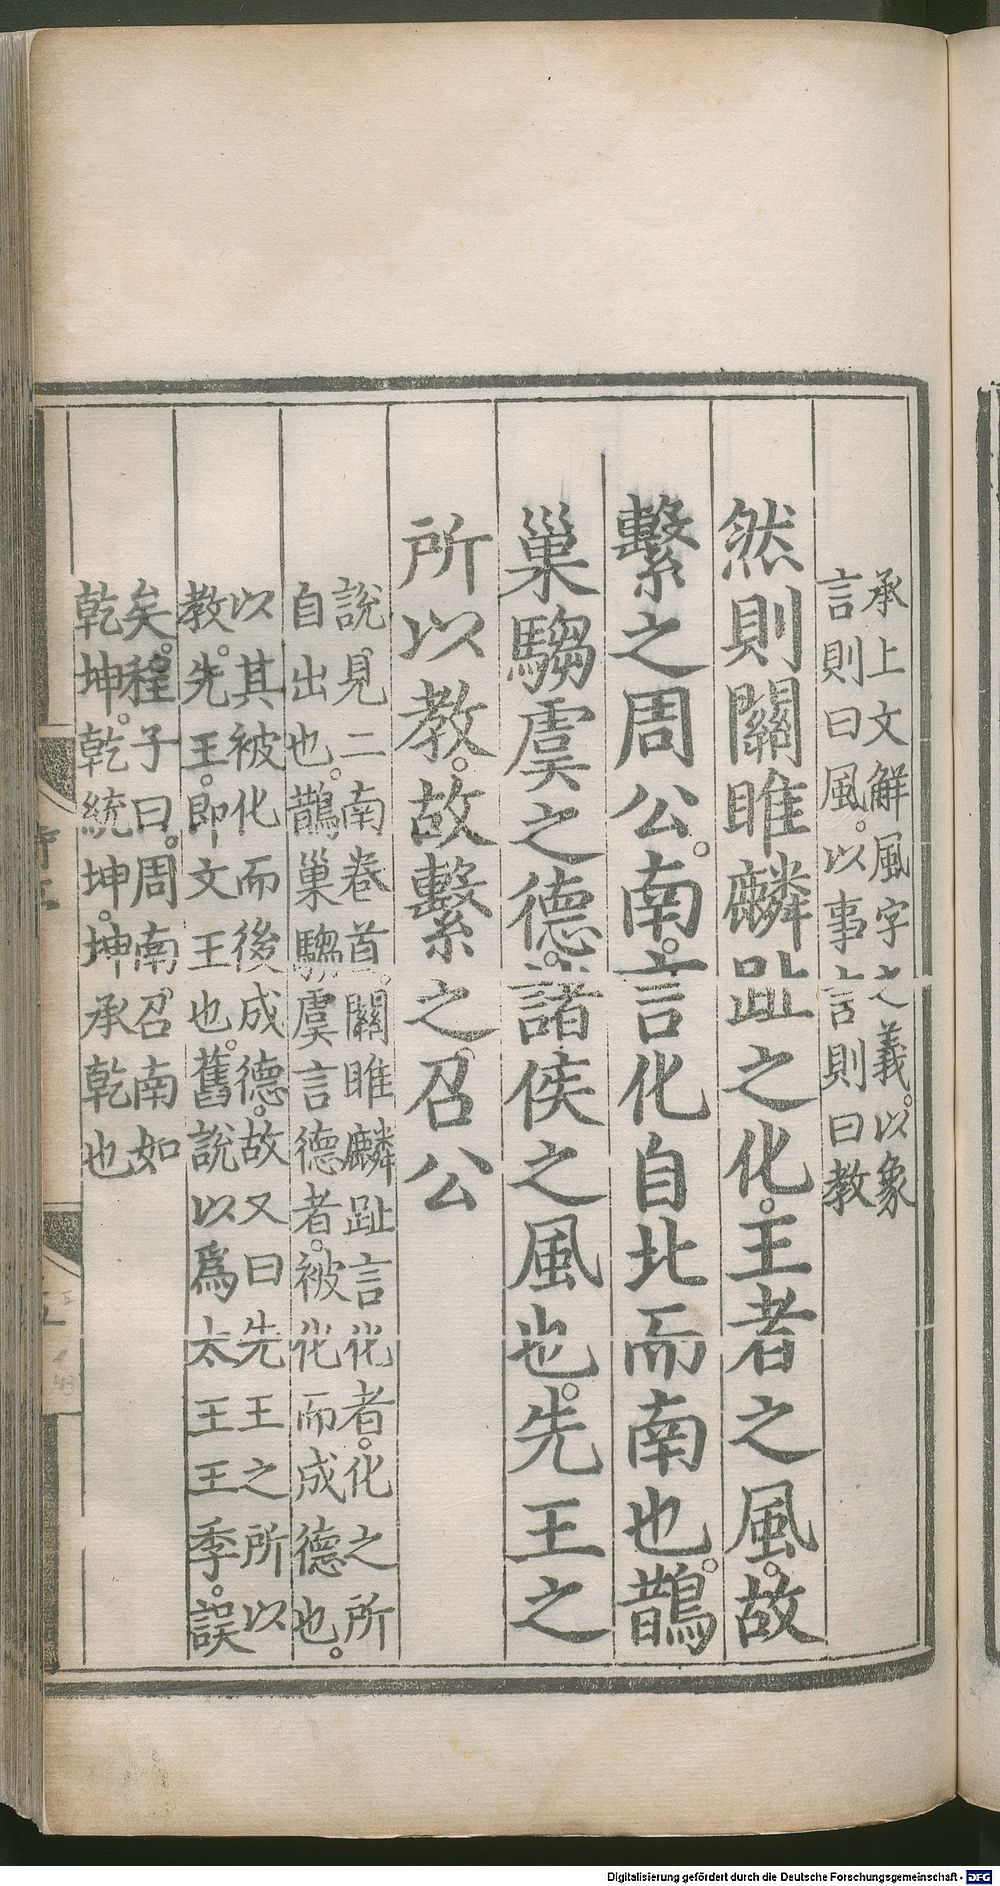 承上文解風字之義。以象
言則曰風。以事言則曰教
然則關雎麟趾之化。王者之風。故
繫之周公。南。言化自北而南也。鵲
巢騶虞之德。諸侯之風也。先王之
所以教。故繫之。召公
說見二南卷首。關雎麟趾言化者。化之所
自出也。鵲巢騶虞言德者。被化而成德也。
以其被化而後成德。故又曰先王之所以
教。先王。即文王也。舊說以爲太王王季。誤
矣。程子曰。周南召南如
乾坤。乾統坤。坤承乾也
Digitalisierung gefördert durch die Deutsche Forschungsgemeinschaft - DFG